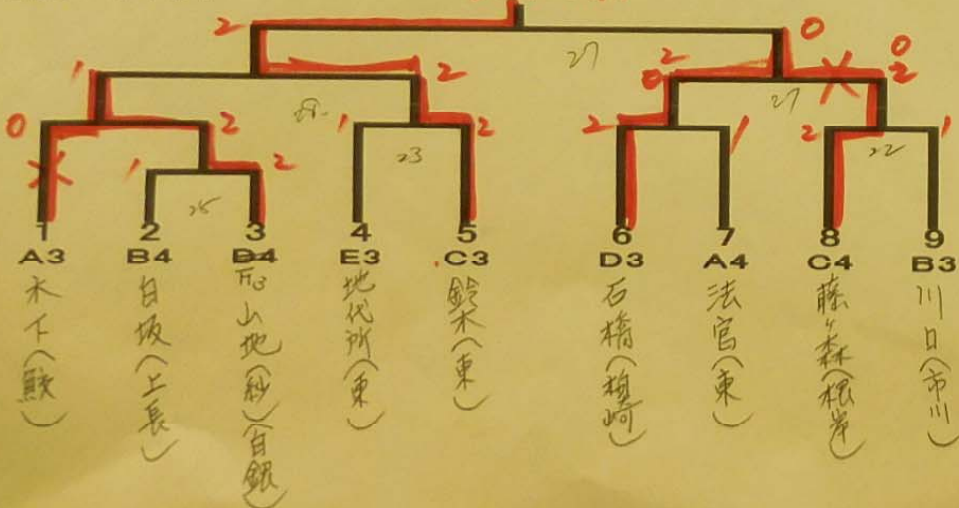 2 0
2 0
1 2 0 2
28 27 27
0 2 1 2 2 1 2 1
23 22
1 2
25
1 2 3 4 5 6 7 8 9
A3 B4 B4 E3 C3 D3 A4 C4 B3
木下(鮫)
白坂(上長)
山地(紗)(白銀)
地代所(東)
鈴木(東)
石橋
法官(東)
藤ヶ森(根岸)
川口(市川)